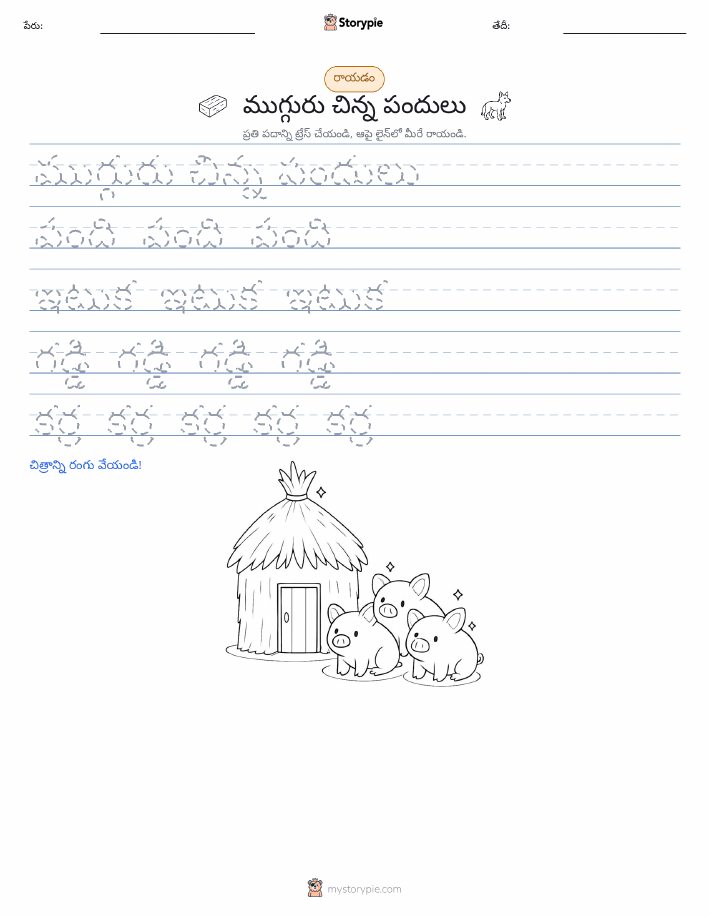 పేరు:
Storypie
తేదీ:
రాయడం
ముగ్గురు చిన్న పందులు
ప్రతి పదాన్ని ట్రేస్ చేయండి, ఆపై లైన్‌లో మీరే రాయండి.
ముగ్గురు చిన్న పందులు
పంది పంది పంది
ఇటుక ఇటుక ఇటుక
గడ్డి గడ్డి గడ్డి గడ్డి
కర్ర కర్ర కర్ర కర్ర కర్ర
చిత్రాన్ని రంగు వేయండి!
mystorypie.com